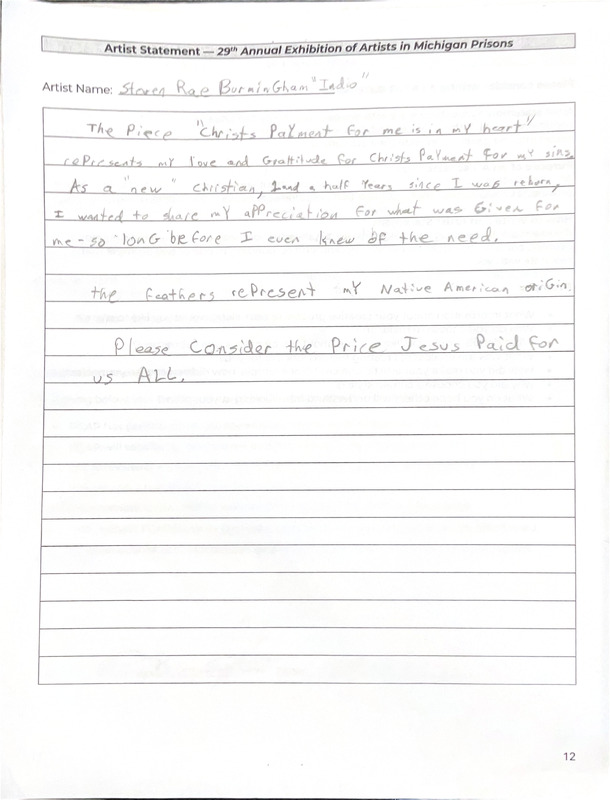 Artist Statement — 29th Annual Exhibition of Artists in Michigan Prisons
Artist Name: Steven Rae Burmingham "Indio"
The Piece "Christs Payment for me is in my heart"
represents my love and Grattitude for Christs Payment for my sins.
As a "new" Christian, 1 and a half Years since I was reborn,
I wanted to share my appreciation for what was Given for
me - so long before I even knew of the need.
the feathers represent my Native American origin.
Please Consider the Price Jesus Paid for
us ALL.
12